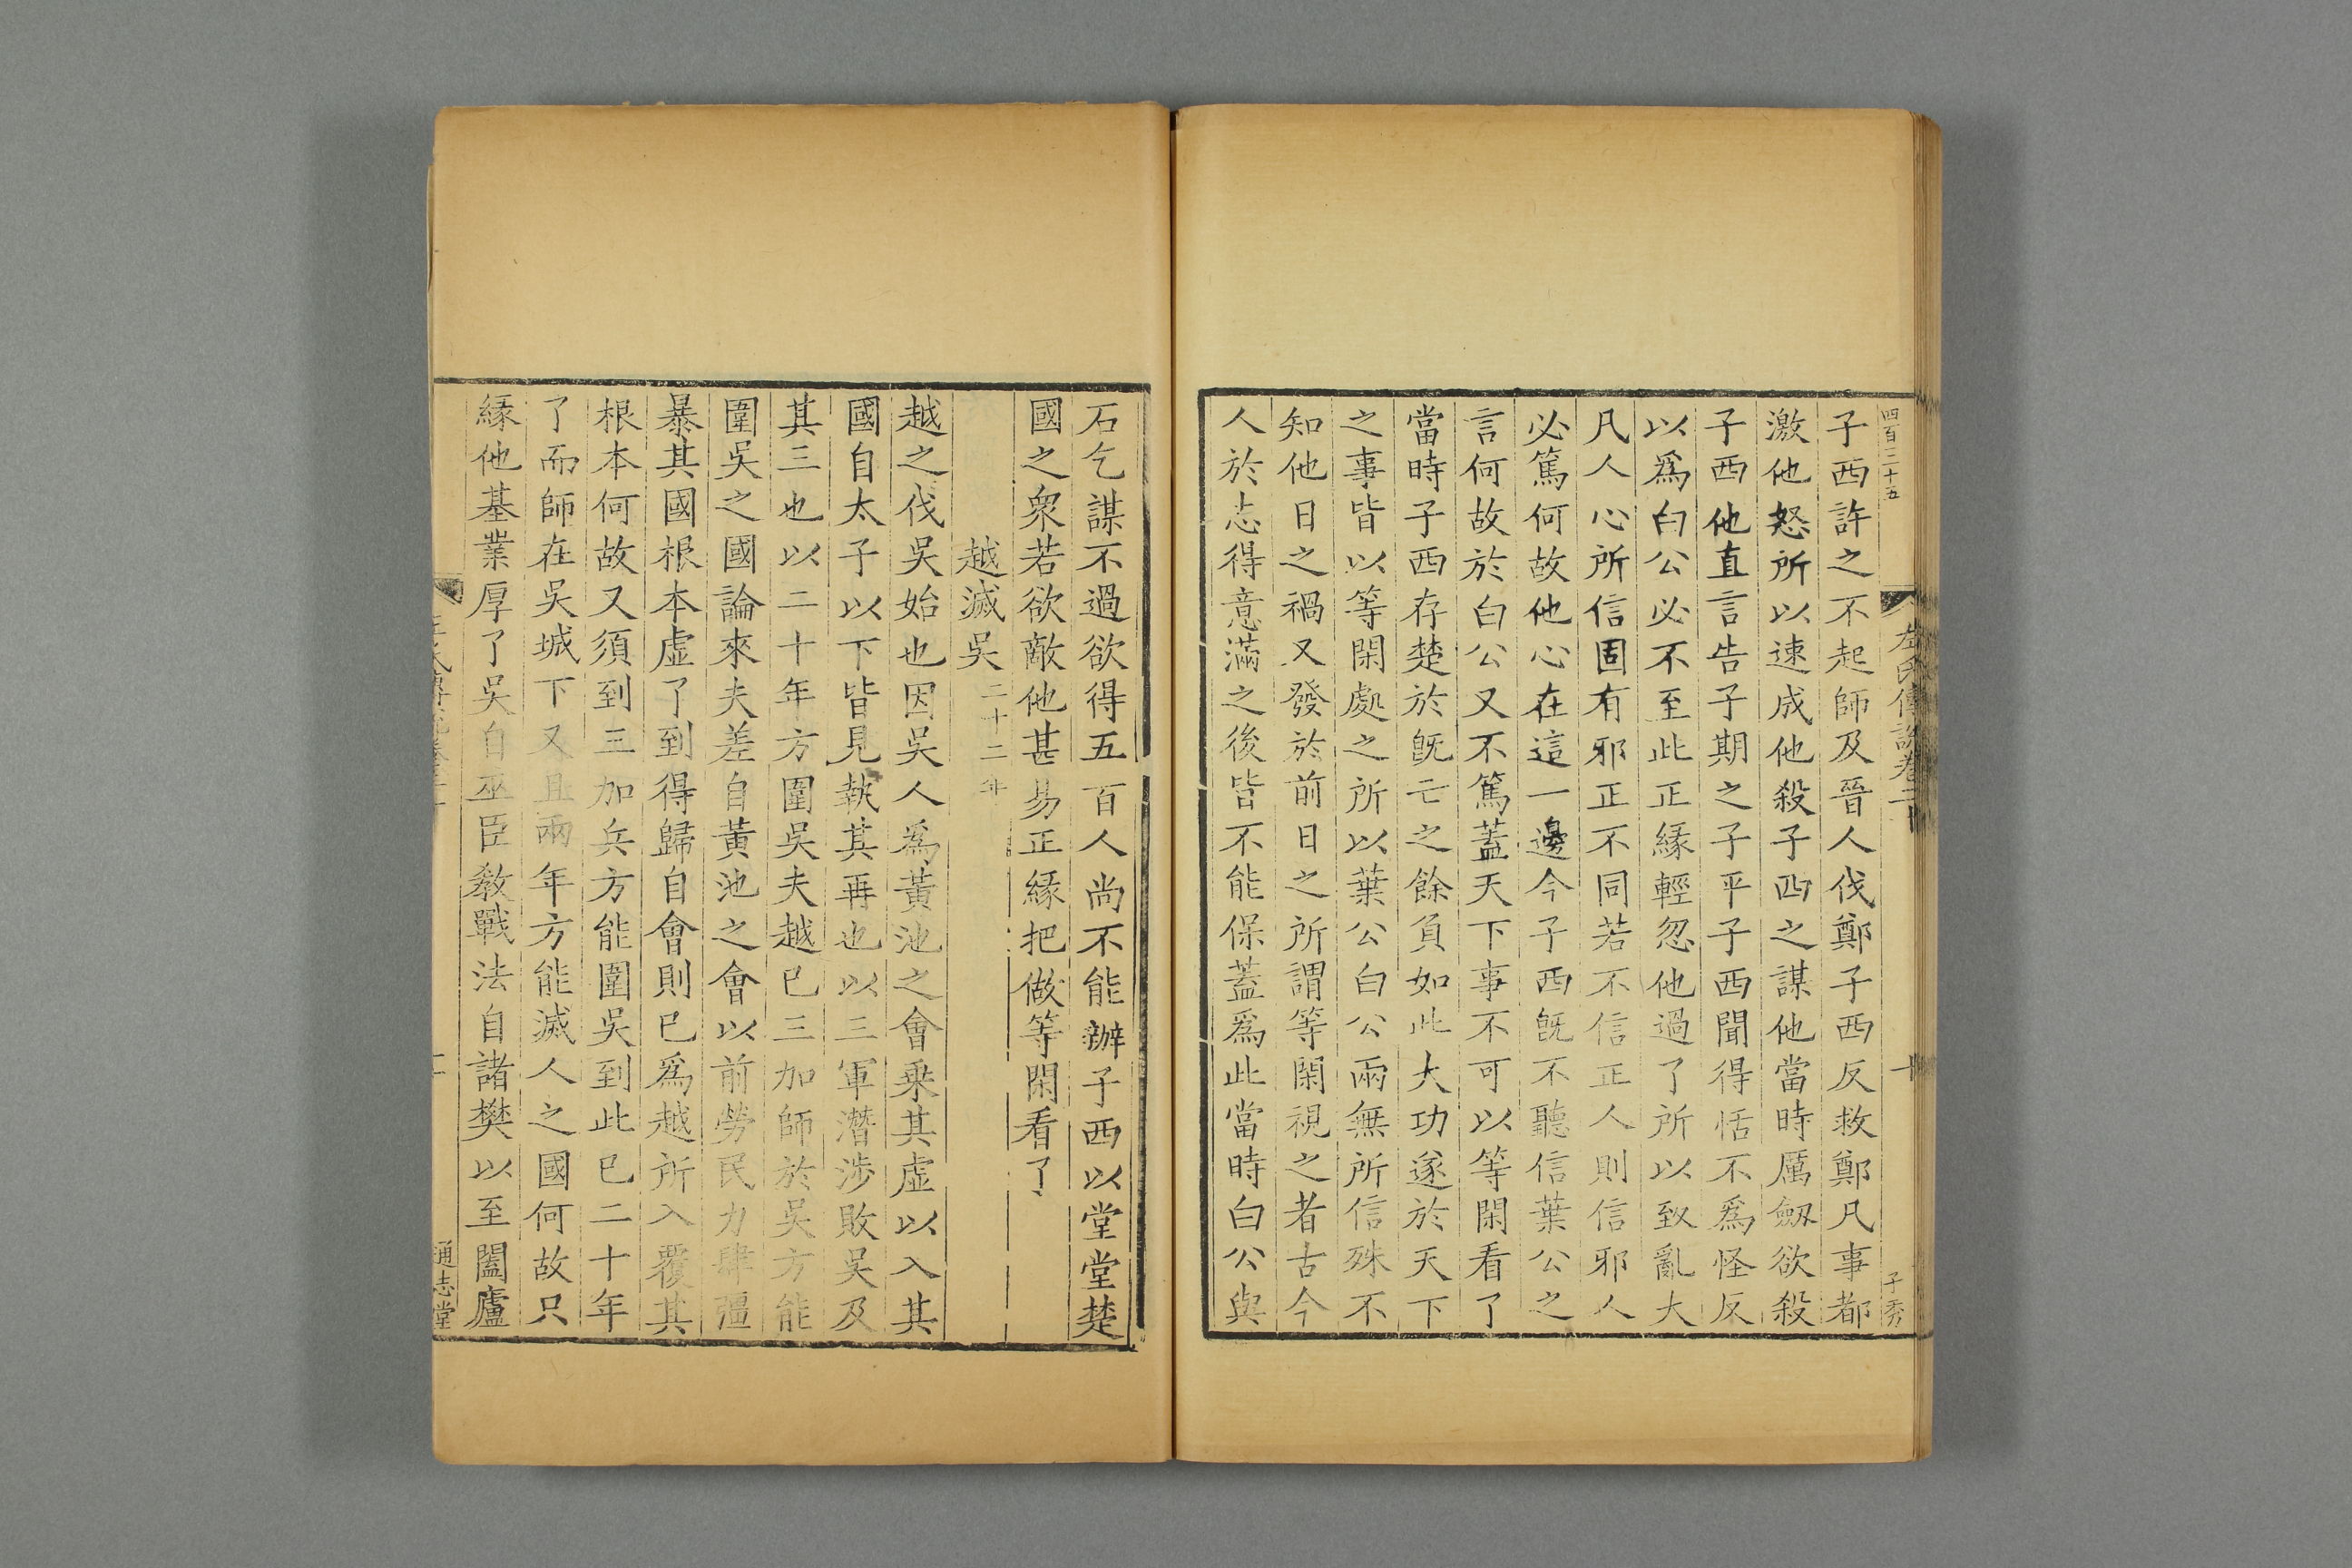 四百三十五
左氏傳說卷二十
十
子秀
子西許之不起師及晉人伐鄭子西反救鄭凡事都
激他怒所以速成他殺子西之謀他當時厲劒欲殺
子西他直言告子期之子平子西聞得恬不爲怪反
以爲白公必不至此正緣輕忽他過了所以致亂大
凡人心所信固有邪正不同若不信正人則信邪人
必篤何故他心在這一邊今子西既不聽信葉公之
言何故於白公又不篤蓋天下事不可以等閑看了
當時子西存楚於既亡之餘負如此大功遂於天下
之事皆以等閑處之所以葉公白公兩無所信殊不
知他日之禍又發於前日之所謂等閑視之者古今
人於志得意滿之後皆不能保蓋爲此當時白公與
石乞謀不過欲得五百人尚不能辦子西以堂堂楚
國之衆若欲敵他甚易正緣把做等閑看了
越滅吳 二十二年
越之伐吳始也因吳人爲黃池之會乗其虛以入其
國自太子以下皆見執其再也以三軍潛涉敗吳及
其三也以二十年方圍吳夫越已三加師於吳方能
圍吳之國論來夫差自黃池之會以前勞民力肆彊
暴其國根本虛了到得歸自會則已爲越所入覆其
根本何故又須到三加兵方能圍吳到此已二十年
了而師在吳城下又且兩年方能滅人之國何故只
緣他基業厚了吳自巫臣敎戰法自諸樊以至闔廬
通志堂